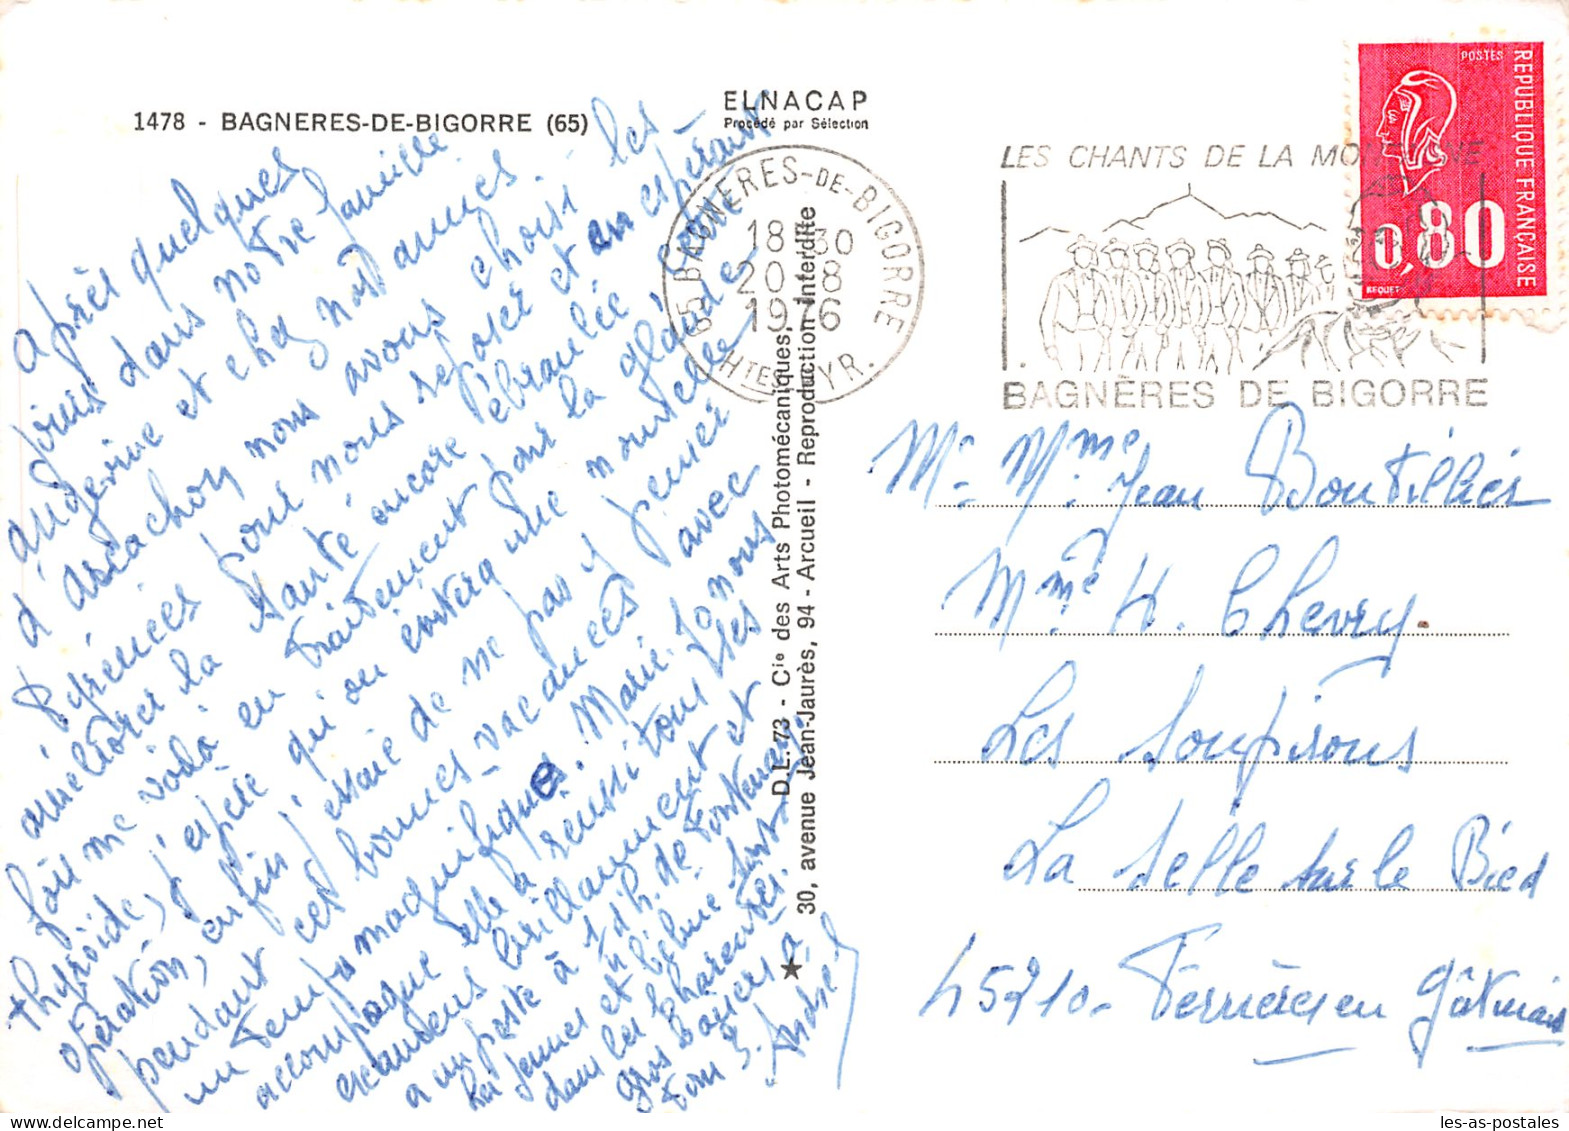 1478 - BAGNERES-DE-BIGORRE (65)
ELNACAP
Procédé par Sélection
après quelques
jours dans notre famille
angevine et chez nos amies
d'Arcachon nous avons choisi les
Pyrénées pour nous reposer et en espérant
améliorer la santé encore ébranlée. Cette
fois me voilà en traitement pour la glande
thyroïde, j'espère qu'on évitera une nouvelle
opération, enfin j'essaie de ne pas y penser
pendant ces bonnes vacances avec
un temps magnifique. Marie-Jo nous
accompagne elle a réussi tous ses
examens brillamment et
a un poste à 1/4 h. de Fontenay
Les jeunes et bébé sont
dans les Charentes.
gros baisers à
tous 3. André
65 BAGNERES-DE-BIGORRE
18 30
20-8
1976
HTES PYR.
LES CHANTS DE LA MONTAGNE
BAGNÈRES DE BIGORRE
POSTES
REPUBLIQUE FRANCAISE
0,80
BEQUET
D.L. 73 - Cie des Arts Photomécaniques,
30, avenue Jean-Jaurès, 94 - Arcueil - Reproduction Interdite
Mr Mme Jean Boutillier
Mme H. Chevry
Les Soupirons
La Selle sur le Bied
45210 - Ferrières en Gâtinais
les-as-postales